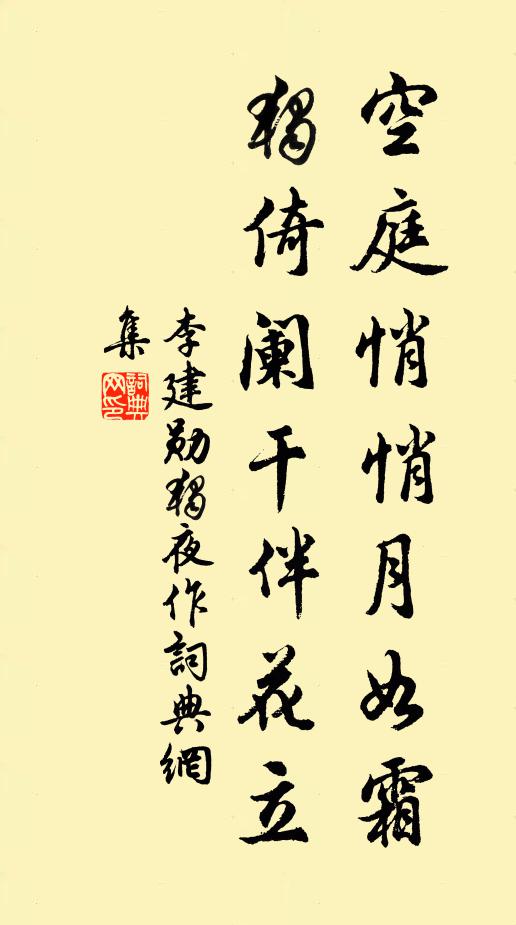 空庭悄悄月如霜
獨倚阑干伴花立
李建勋獨夜作詞典網
集
詞典网印